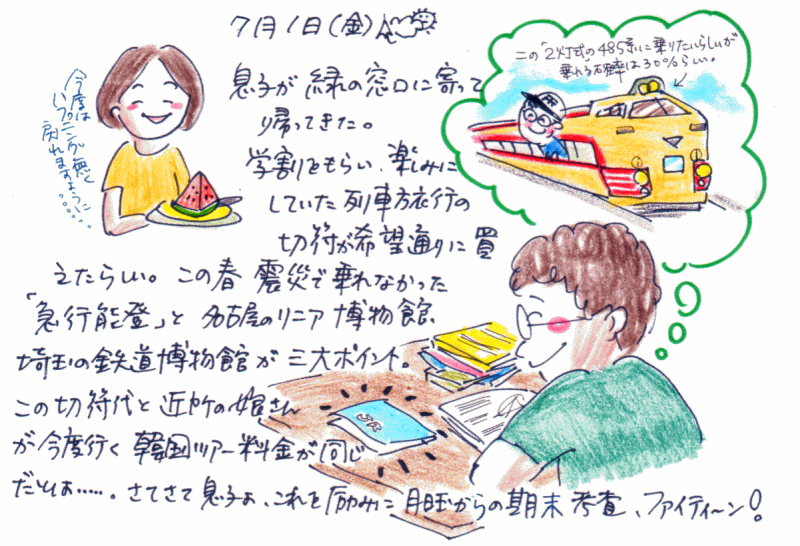 7月1日(金)
息子が緑の窓口に寄って
帰ってきた。
学割をもらい、楽しみに
していた列車旅行の
切符が希望通りに買
えたらしい。この春 震災で乗れなかった
「急行能登」と 名古屋のリニア博物館、
埼玉の鉄道博物館が 三大ポイント。
この切符代と 近所の嫁さん
が今度行く 韓国ツアー料金が同じ
だとは……。さてさて 息子よ、これを励みに 月曜からの期末考査、ファイティ～ン!
この「2灯式の485系に乗りたいらしいが
乗れる確率は30%らしい。
今度は
戻れますように……